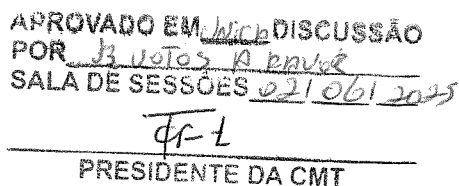 APROVADO EM única DISCUSSÃO
POR 13 VOTOS A FAVOR
SALA DE SESSÕES 02/06/2025
PRESIDENTE DA CMT